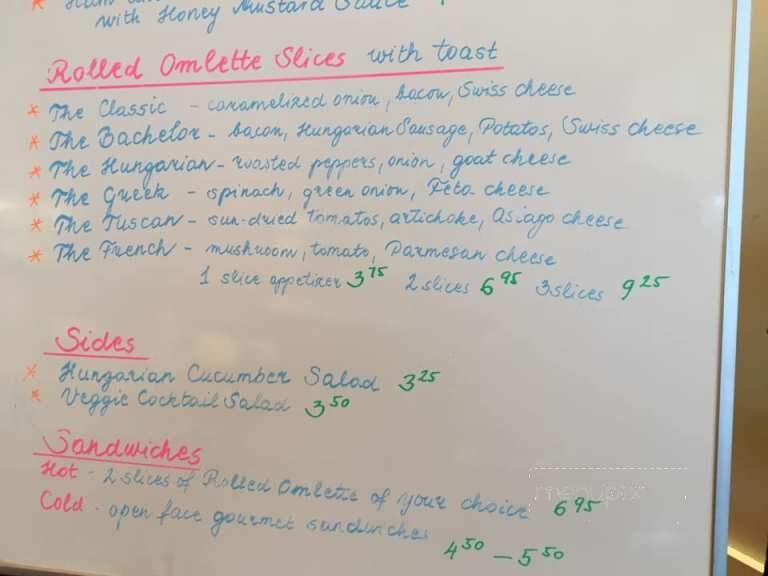 with Honey Mustard Sauce
Rolled Omlette Slices with toast
* The Classic - caramelized onion, bacon, Swiss cheese
* The Bachelor - bacon, Hungarian Sausage, Potatos, Swiss cheese
* The Hungarian - roasted peppers, onion, goat cheese
* The Greek - spinach, green onion, Feta cheese
* The Tuscan - sun-dried tomatos, artichoke, Asiago cheese
* The French - mushroom, tomato, Parmesan cheese
1 slice appetizer 3 75 2 slices 6 95 3 slices 9 25
Sides
* Hungarian Cucumber Salad 3 25
* Veggie Cocktail Salad 3 50
Sandwiches
Hot - 2 slices of Rolled Omlette of your choice 6 95
Cold - open face gourmet sundwiches
4 50 - 5 50